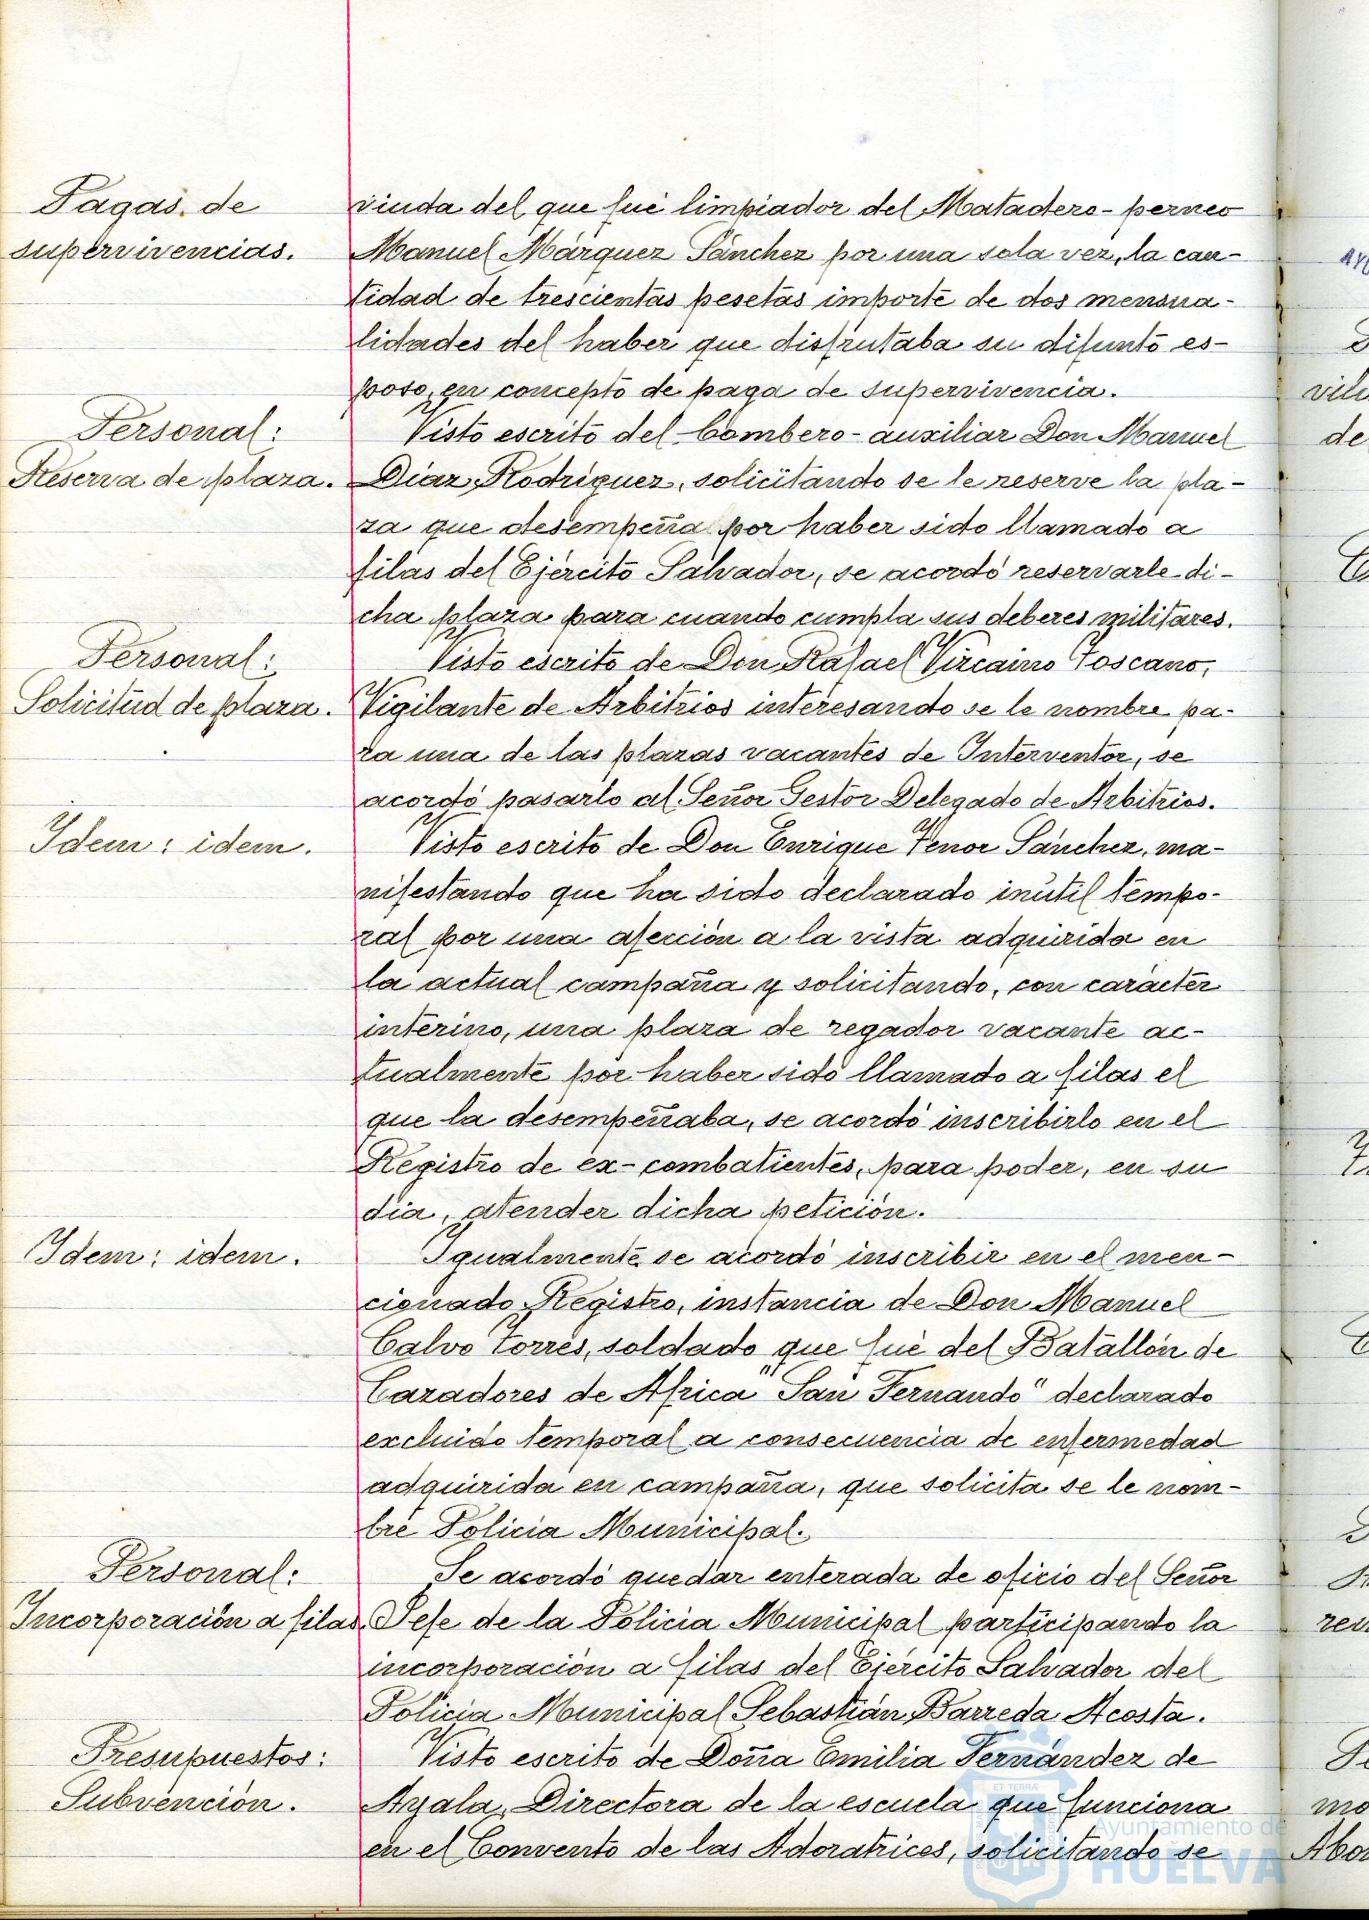 Pagas de
supervivencias.
viuda del que fué limpiador del Matadero-perneo
Manuel Márquez Sánchez por una sola vez, la can-
tidad de trescientas pesetas importe de dos mensua-
lidades del haber que disfrutaba su difunto es-
poso, en concepto de paga de supervivencia.
Personal:
Reserva de plaza.
Visto escrito del bombero-auxiliar Don Manuel
Díaz Rodríguez, solicitando se le reserve la pla-
za que desempeña por haber sido llamado a
filas del Ejército Salvador, se acordó reservarle di-
cha plaza para cuando cumpla sus deberes militares.
Personal:
Solicitud de plaza.
Visto escrito de Don Rafael Vizcaino Toscano,
Vigilante de Arbitrios interesando se le nombre pa-
ra una de las plazas vacantes de Interventor, se
acordó pasarlo al Señor Gestor Delegado de Arbitrios.
Idem: idem.
Visto escrito de Don Enrique Tenor Sánchez, ma-
nifestando que ha sido declarado inútil tempo-
ral por una afección a la vista adquirida en
la actual campaña y solicitando, con carácter
interino, una plaza de regador vacante ac-
tualmente por haber sido llamado a filas el
que la desempeñaba, se acordó inscribirlo en el
Registro de ex-combatientes, para poder, en su
dia, atender dicha petición.
Idem: idem.
Igualmente se acordó inscribir en el men-
cionado Registro, instancia de Don Manuel
Calvo Torres, soldado que fué del Batallón de
Cazadores de Africa "San Fernando" declarado
excluido temporal a consecuencia de enfermedad
adquirida en campaña, que solicita se le nom-
bre Policia Municipal.
Personal:
Incorporación a filas.
Se acordó quedar enterada de oficio del Señor
Jefe de la Policia Municipal participando la
incorporación a filas del Ejército Salvador del
Policia Municipal Sebastián Barreda Acosta.
Presupuestos:
Subvención.
Visto escrito de Doña Emilia Fernández de
Ayala, Directora de la escuela que funciona
en el Convento de las Adoratrices, solicitando se
Ayuntamiento de
HUELVA